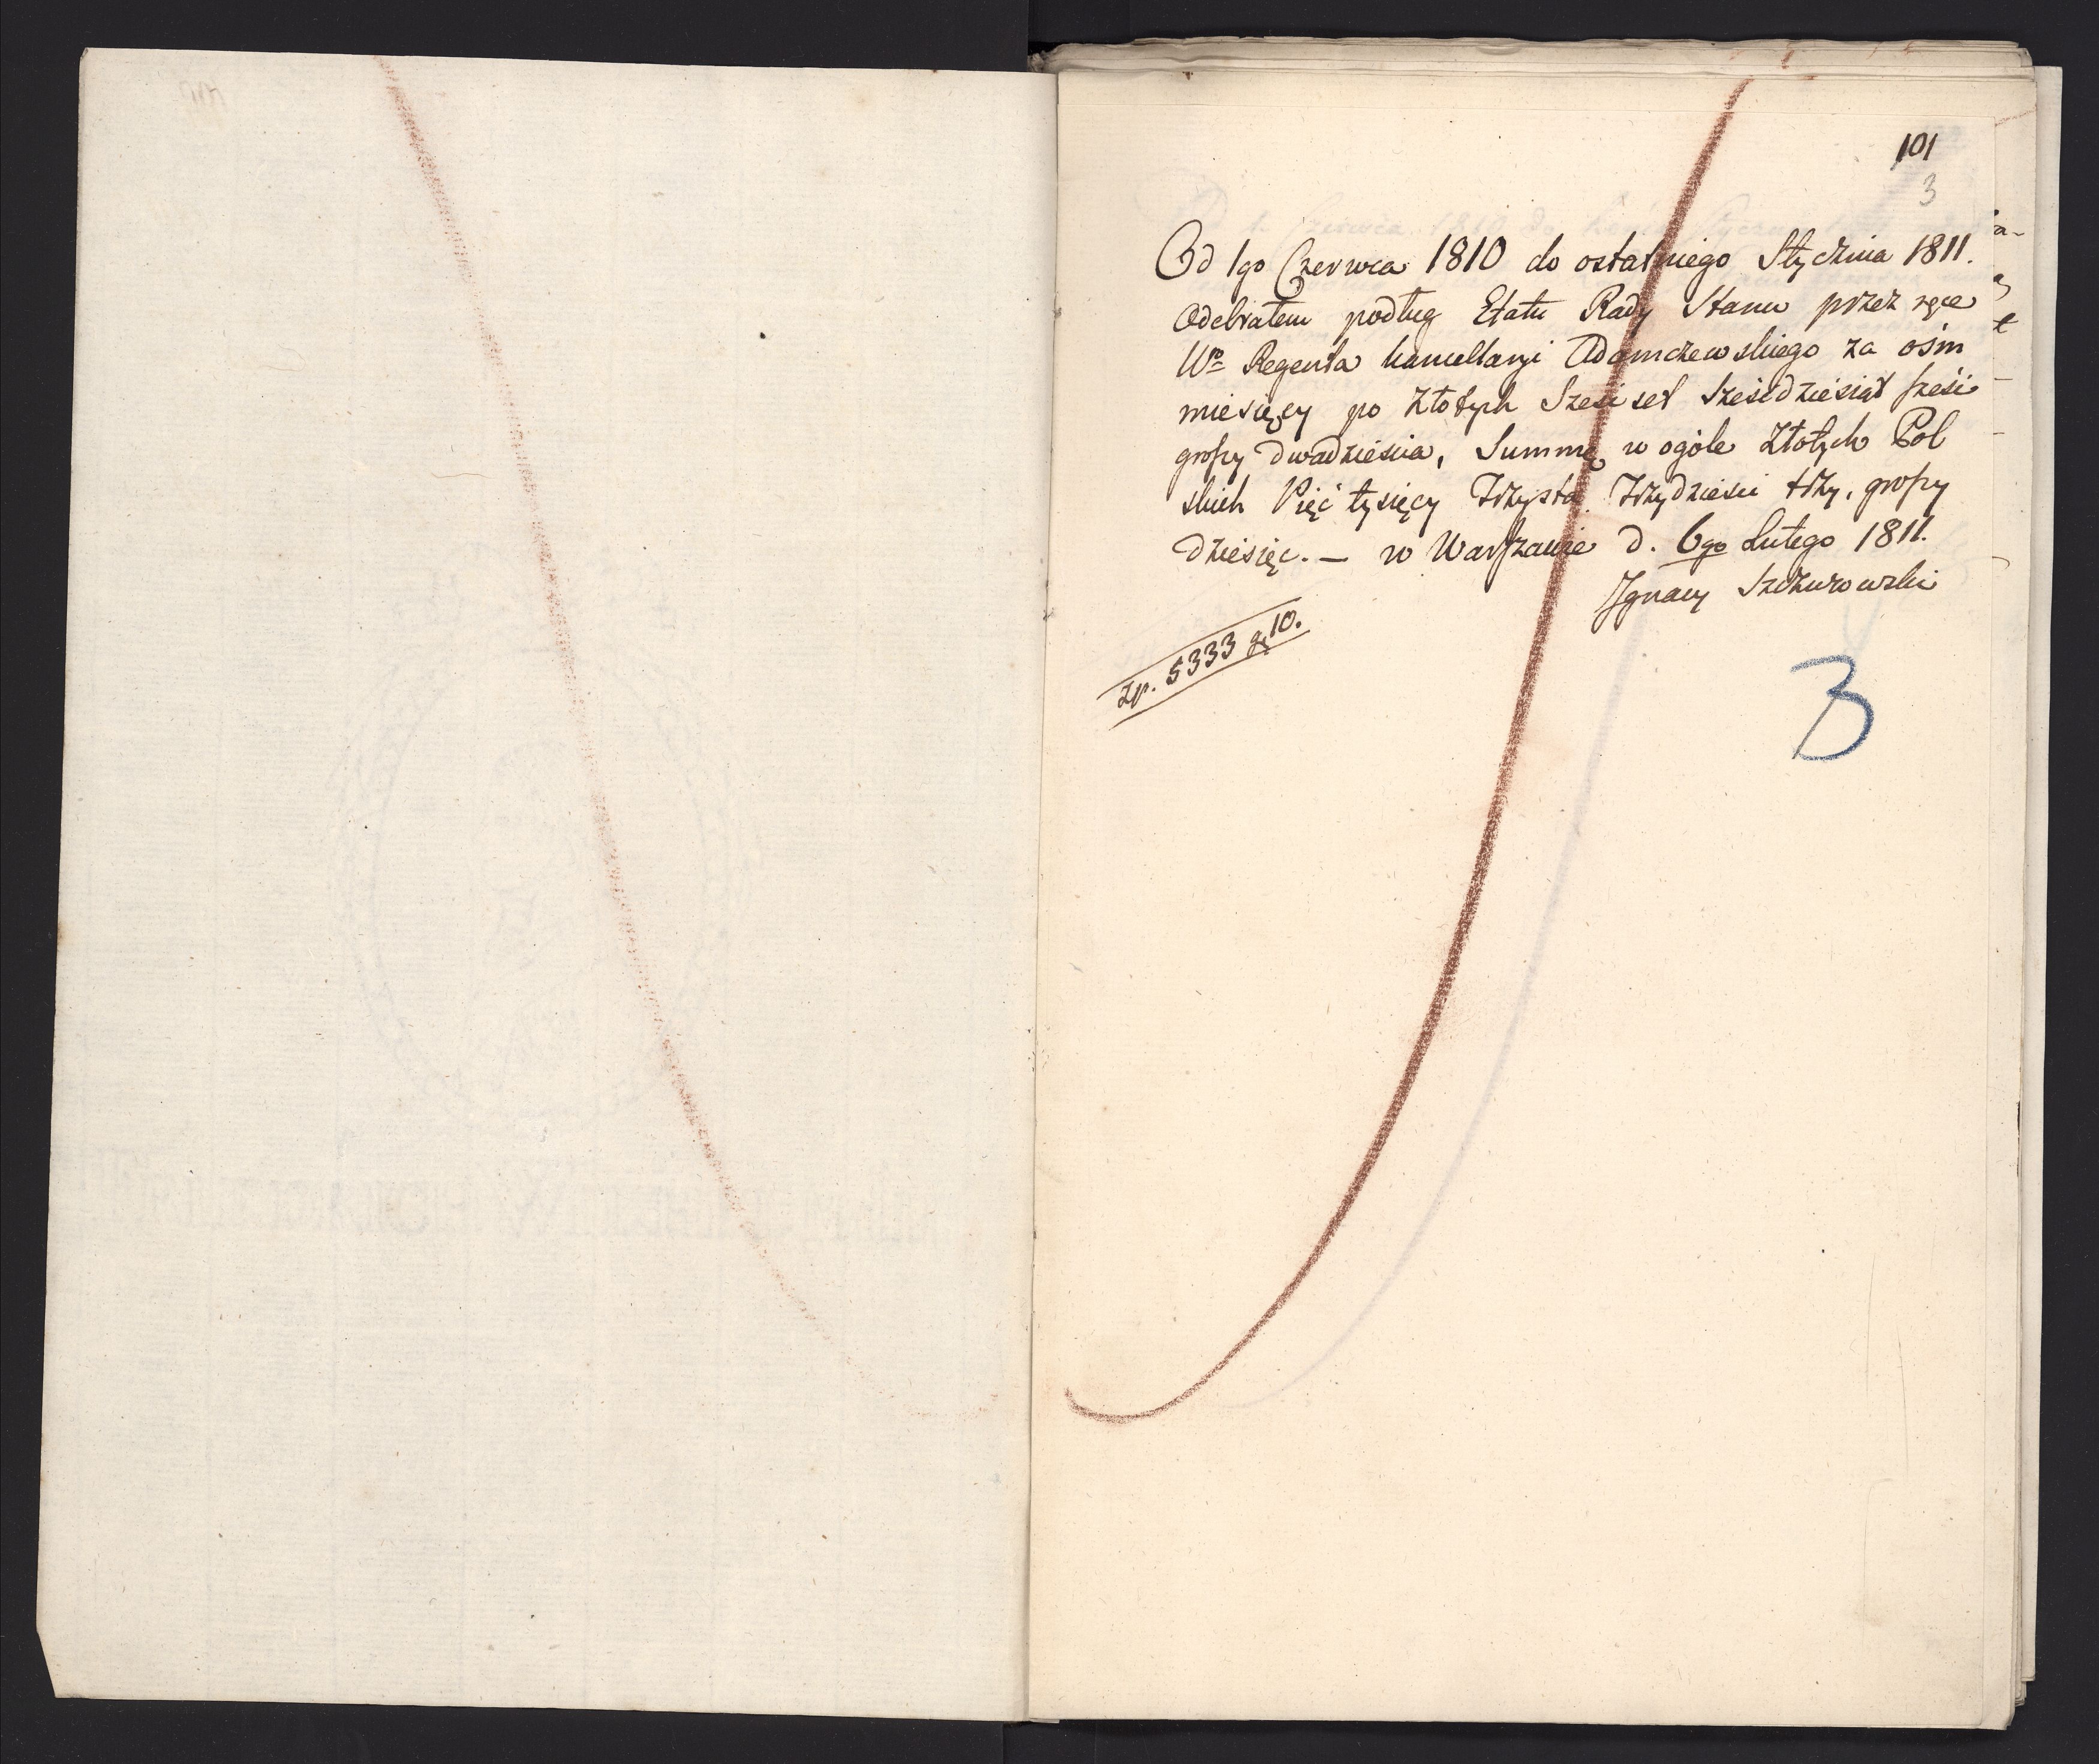 101
3
Od 1go Czerwca 1810 do ostatniego Stycznia 1811.
Odebrałem podług Etatu Rady Stanu przez ręce
Wo Regenta kancellaryi Adamczewskiego za ośm
miesięcy po Złotych Sześćset Sześćdziesiąt sześć
groszy dwadzieścia, Summę w ogóle Złotych Pol
skich Pięć tysięcy Trzysta Trzydzieści trzy, groszy
dziesięć. — w Warszawie d. 6go Lutego 1811.
Ignacy Szczurowski
Zp. 5333 gr 10.
3